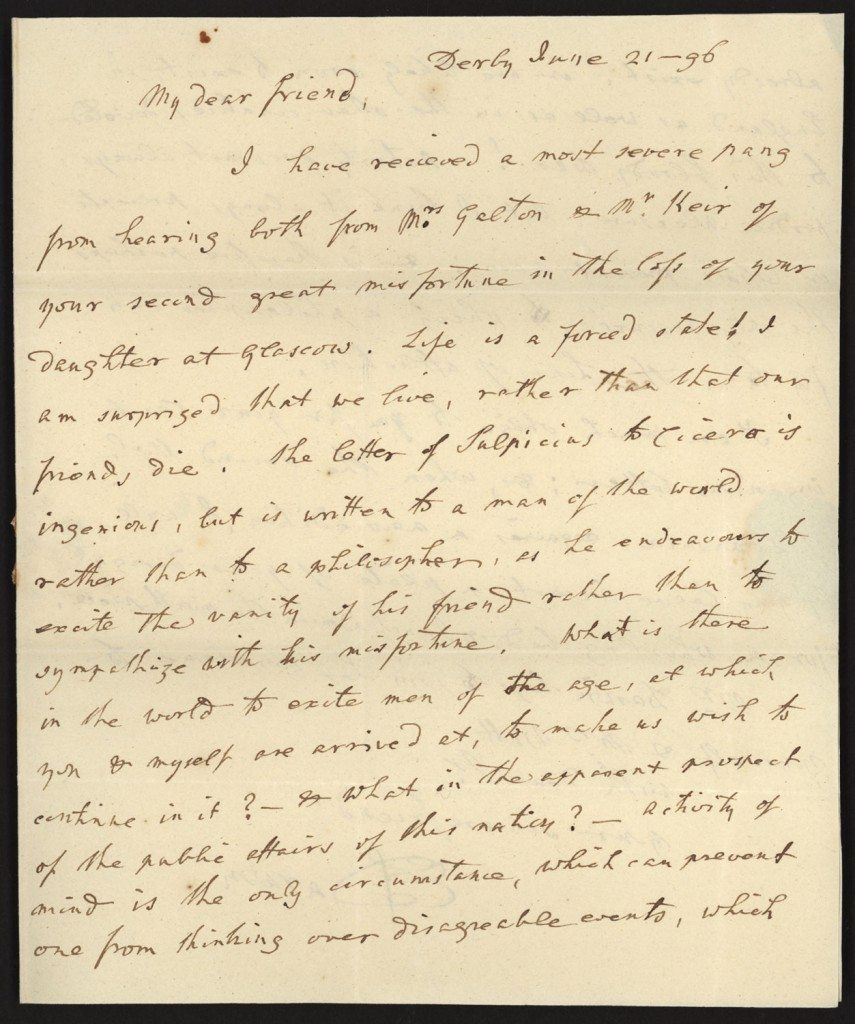 Derby June 21-96
My dear friend,
I have recieved a most severe pang
from hearing both from Mrs. Galton & Mr. Keir of
your second great misfortune in the loss of your
daughter at Glascow. Life is a forced state! I
am surprized that we live, rather than that our
friends die. The letter of Sulpicius to Cicero is
ingenious, but is written to a man of the world
rather than to a philosopher, as he endeavours to
excite the vanity of his friend rather than to
sympathize with his misfortune. What is there
in the world to exite men of the age, at which
you & myself are arrived at, to make us wish to
continue in it? - & what in the apparent prospect
of the public affairs of this nation? - activity of
mind is the only circumstance, which can prevent
one from thinking over disagreable events, which